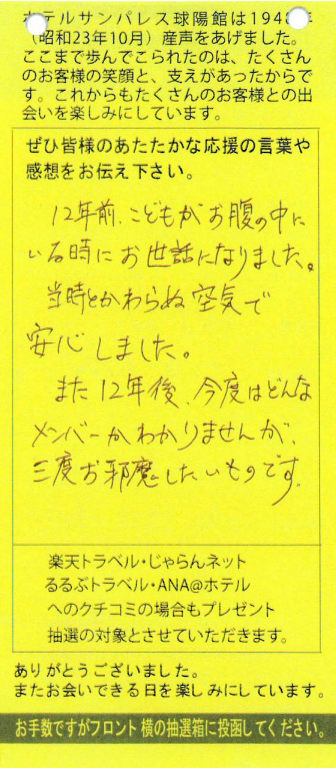 ホテルサンパレス球陽館は1948年
（昭和23年10月）産声をあげました。
ここまで歩んでこられたのは、たくさん
のお客様の笑顔と、支えがあったからで
す。これからもたくさんのお客様との出
会いを楽しみにしています。
ぜひ皆様のあたたかな応援の言葉や
感想をお伝え下さい。
12年前、こどもがお腹の中に
いる時にお世話になりました。
当時とかわらぬ空気で
安心しました。
また12年後、今度はどんな
メンバーかわかりませんが、
三度お邪魔したいものです。
楽天トラベル・じゃらんネット
るるぶトラベル・ANA@ホテル
へのクチコミの場合もプレゼント
抽選の対象とさせていただきます。
ありがとうございました。
またお会いできる日を楽しみにしています。
お手数ですがフロント横の抽選箱に投函してください。